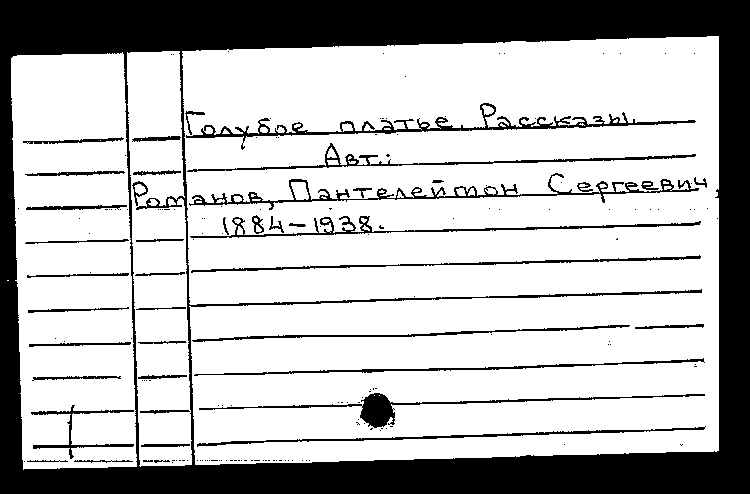 Голубое платье. Рассказы.
Авт.:
Романов, Пантелеймон Сергеевич,
1884-1938.